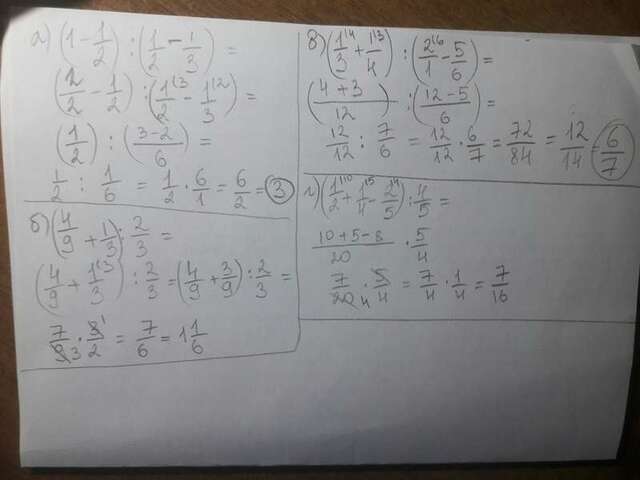 а) (1 - 1/2) : (1/2 - 1/3) =
(2/2 - 1/2) : (1^(3/2 - 1^(2/3) =
(1/2) : (3-2/6) =
1/2 : 1/6 = 1/2 · 6/1 = 6/2 = 3
б) (4/9 + 1/3) : 2/3 =
(4/9 + 1^(3/3) : 2/3 = (4/9 + 3/9) : 2/3 =
7/9 3 · 3^1/2 = 7/6 = 1 1/6
в) (1^(4/3 + 1^(3/4) : (2^(6/1 - 5/6) =
(4+3/12) : (12-5/6) =
12/12 : 7/6 = 12/12 · 6/7 = 72/84 = 12/14 = 6/7
г) (1^(10/2 + 1^(5/4 - 2^(4/5) : 4/5 =
10+5-8/20 · 5/4
7/20 4 · 5/4 = 7/4 · 1/4 = 7/16